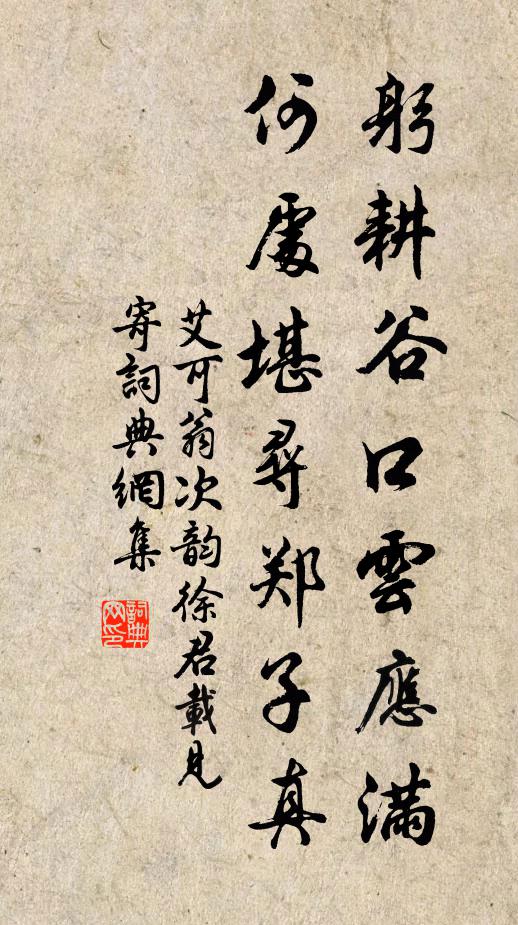 躬耕谷口雲應滿
何處堪尋郑子真
艾可翁次韵徐君載見
寄詞典網集
詞典網印